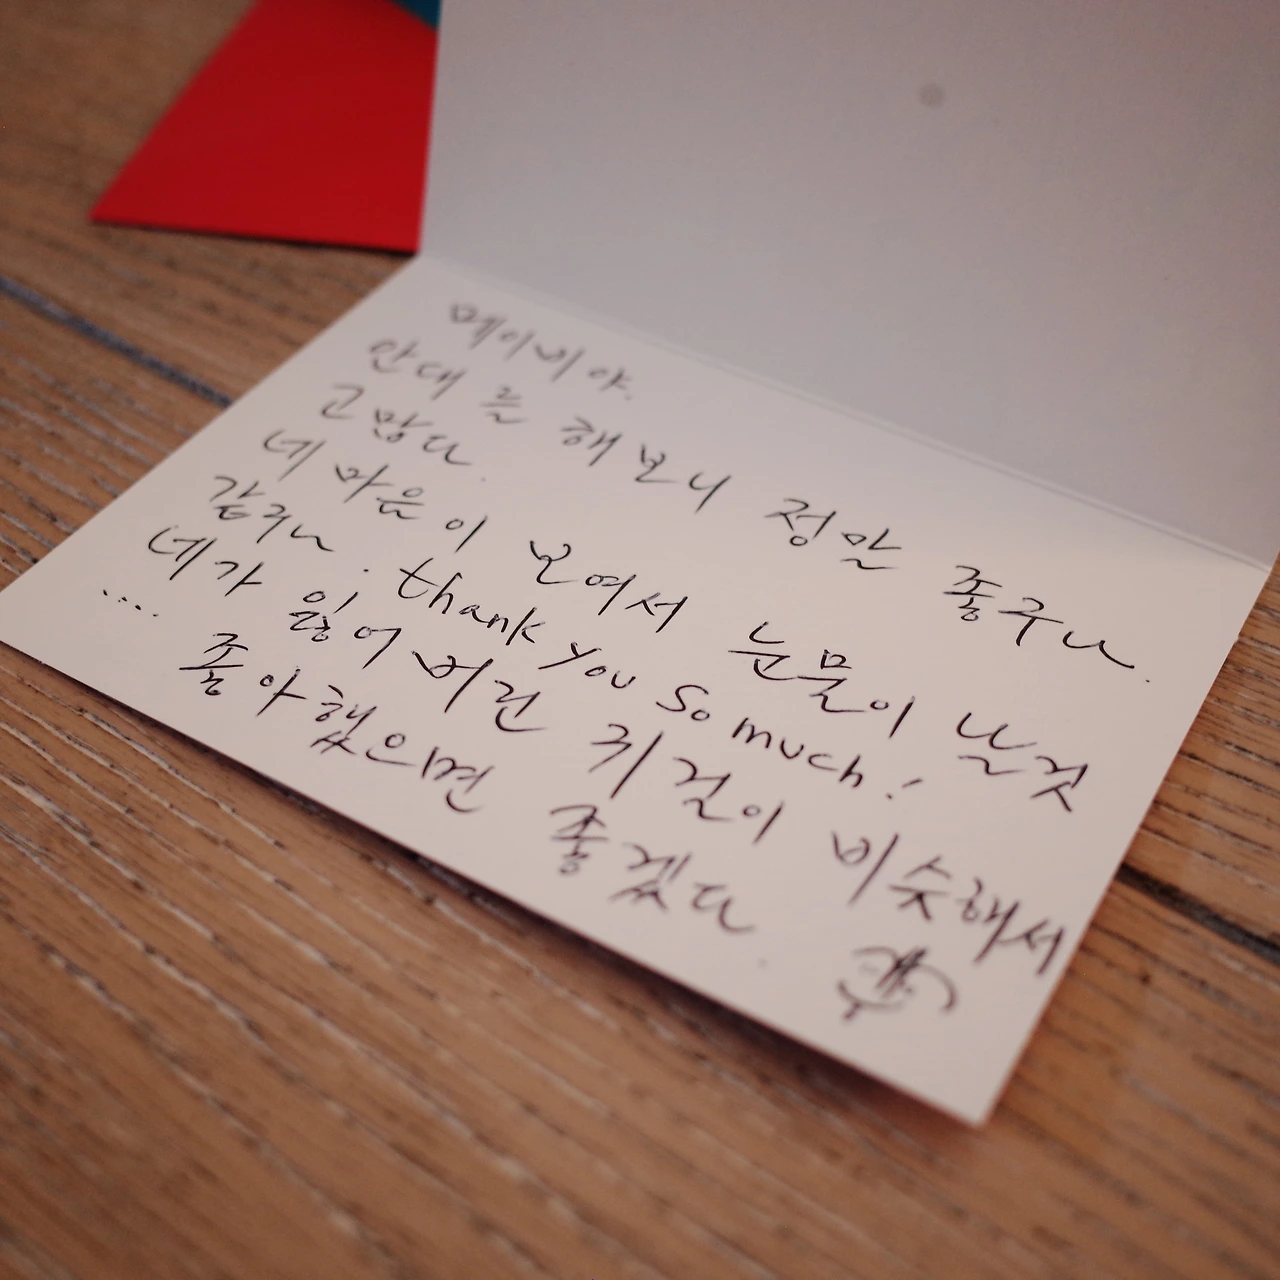 메이비야.
안대를 해보니 정말 좋구나.
고맙다.
네 마음이 보여서 눈물이 날것
같구나. thank you so much!
네가 잃어버린 귀걸이 비슷해서
.... 좋아했으면 좋겠다